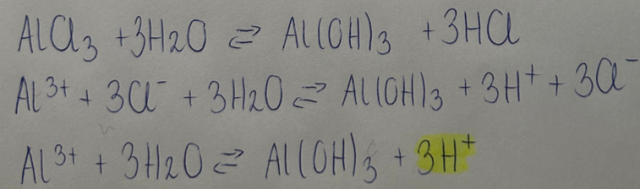 AlCl3 + 3H2O ⇌ Al(OH)3 + 3HCl
Al3+ + 3Cl- + 3H2O ⇌ Al(OH)3 + 3H+ + 3Cl-
Al3+ + 3H2O ⇌ Al(OH)3 + 3H+